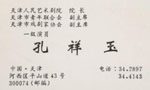 天津人民艺术剧院 院长
天津市青年联合会 副主席
天津市戏剧家协会 副主席
一级演员
孔祥玉
中国·天津
河西区平山道43号
300074（邮编）
电话：34.7897
34.4143